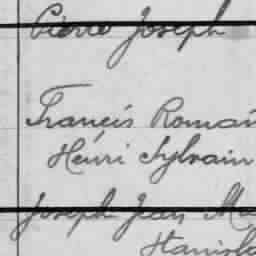 Pierre Joseph
Francis Romain
Henri Sylvain
Joseph Jean